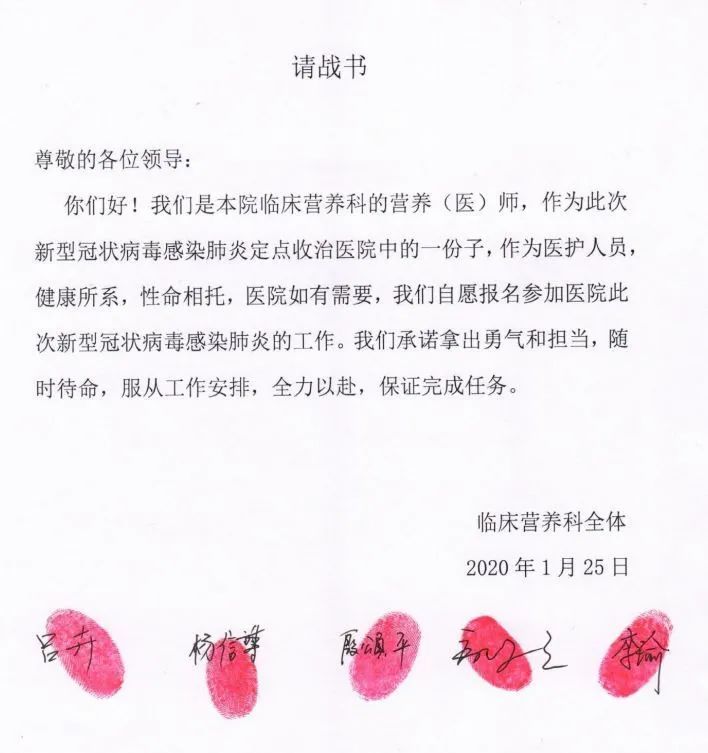 请战书
尊敬的各位领导:
你们好！我们是本院临床营养科的营养（医）师，作为此次
新型冠状病毒感染肺炎定点收治医院中的一份子，作为医护人员，
健康所系，性命相托，医院如有需要，我们自愿报名参加医院此
次新型冠状病毒感染肺炎的工作。我们承诺拿出勇气和担当，随
时待命，服从工作安排，全力以赴，保证完成任务。
临床营养科全体
2020 年 1 月 25 日
吕卉 殷頌平 李瑜